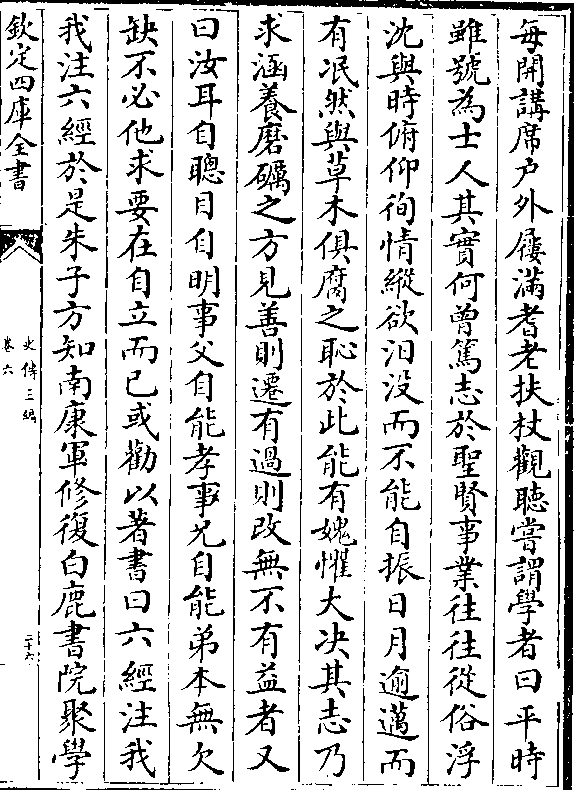 每開講席户外屨滿耆老扶杖觀聽嘗謂學者曰平時
雖號為士人其實何曾篤志於聖賢事業往往從俗浮
沈與時俯仰徇情縱欲汩没而不能自振日月逾邁而
有泯然與草木俱腐之恥於此能有媿懼大决其志乃
求涵養磨礪之方見善則遷有過則改無不有益者又
曰汝耳自聰目自明事父自能孝事兄自能弟本無欠
缺不必他求要在自立而已或勸以著書曰六經注我
我注六經於是朱子方知南康軍修復白鹿書院聚學
欽定四庫全書
史傳三編
卷六
二十六